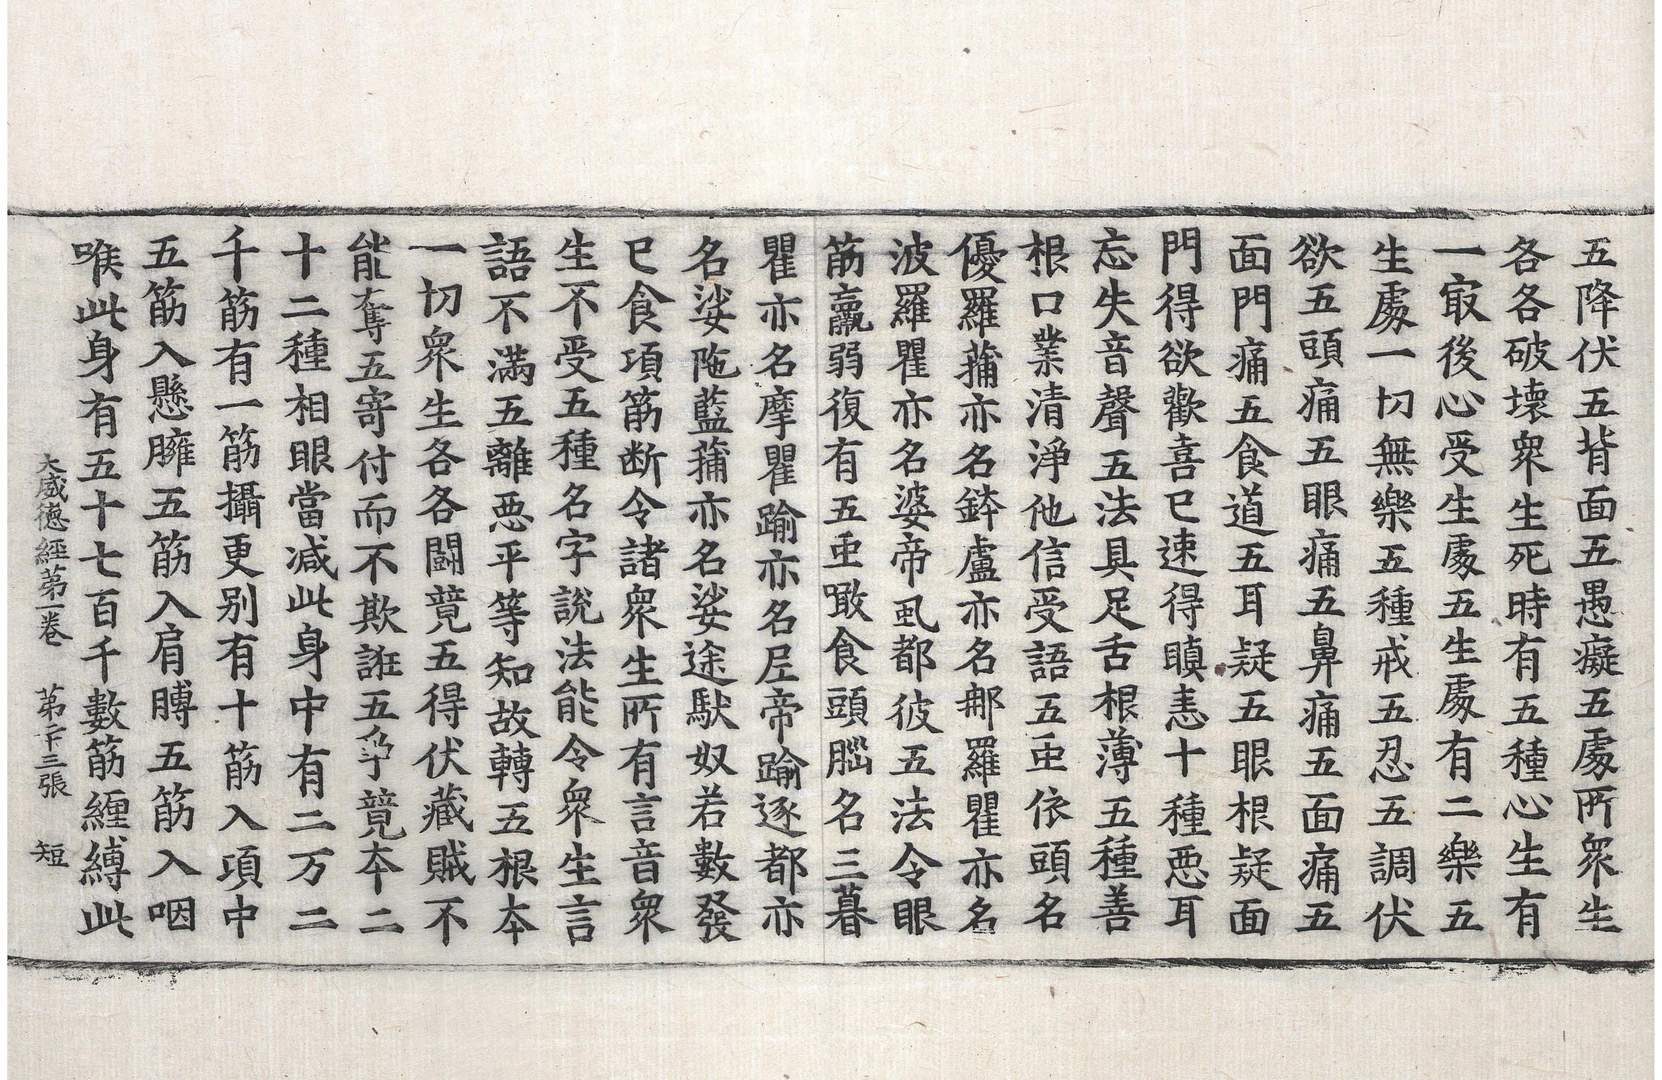 五降伏五背面五愚癡五處所衆生
各各破壞衆生死時有五種心生有
一㝡後心受生處五生處有二樂五
生處一切無樂五種戒五忍五調伏
欲五頭痛五眼痛五鼻痛五面痛五
面門痛五食道五耳疑五眼根疑面
門得欲歡喜已速得瞋恚十種惡耳
忘失音聲五法具足舌根薄五種善
根口業清淨他信受語五䖝依頭名
優羅蒱亦名鉢盧亦名那羅瞿亦名
波羅瞿亦名婆帝虱都彼五法令眼
筋羸弱復有五䖝噉食頭腦名三暮
瞿亦名摩瞿踰亦名𡰱帝踰逐都亦
名娑陁藍蒱亦名娑途馱奴若數發
已食項筋断令諸衆生所有言音衆
生不受五種名字說法能令衆生言
語不滿五離惡平等知故轉五根本
一切衆生各各闘竟五得伏藏賊不
能奪五寄付而不欺誑五爭竟本二
十二種相眼當减此身中有二万二
千筋有一筋攝更別有十筋入項中
五筋入懸臃五筋入肩膊五筋入咽
喉此身有五十七百千數筋纏縛此
大威德經第一卷 第二十三張 短